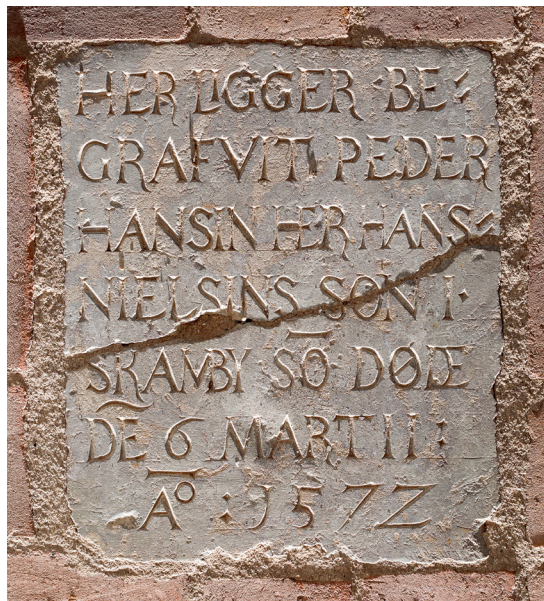 HER LIGGER BE⸗
GRAFVIT PEDER
HANSIN HER HANS⸗
NIELSINS SON I·
SKAMBY SO̅ DØDE
DE̅ 6 MARTII:
A̅o : 1572